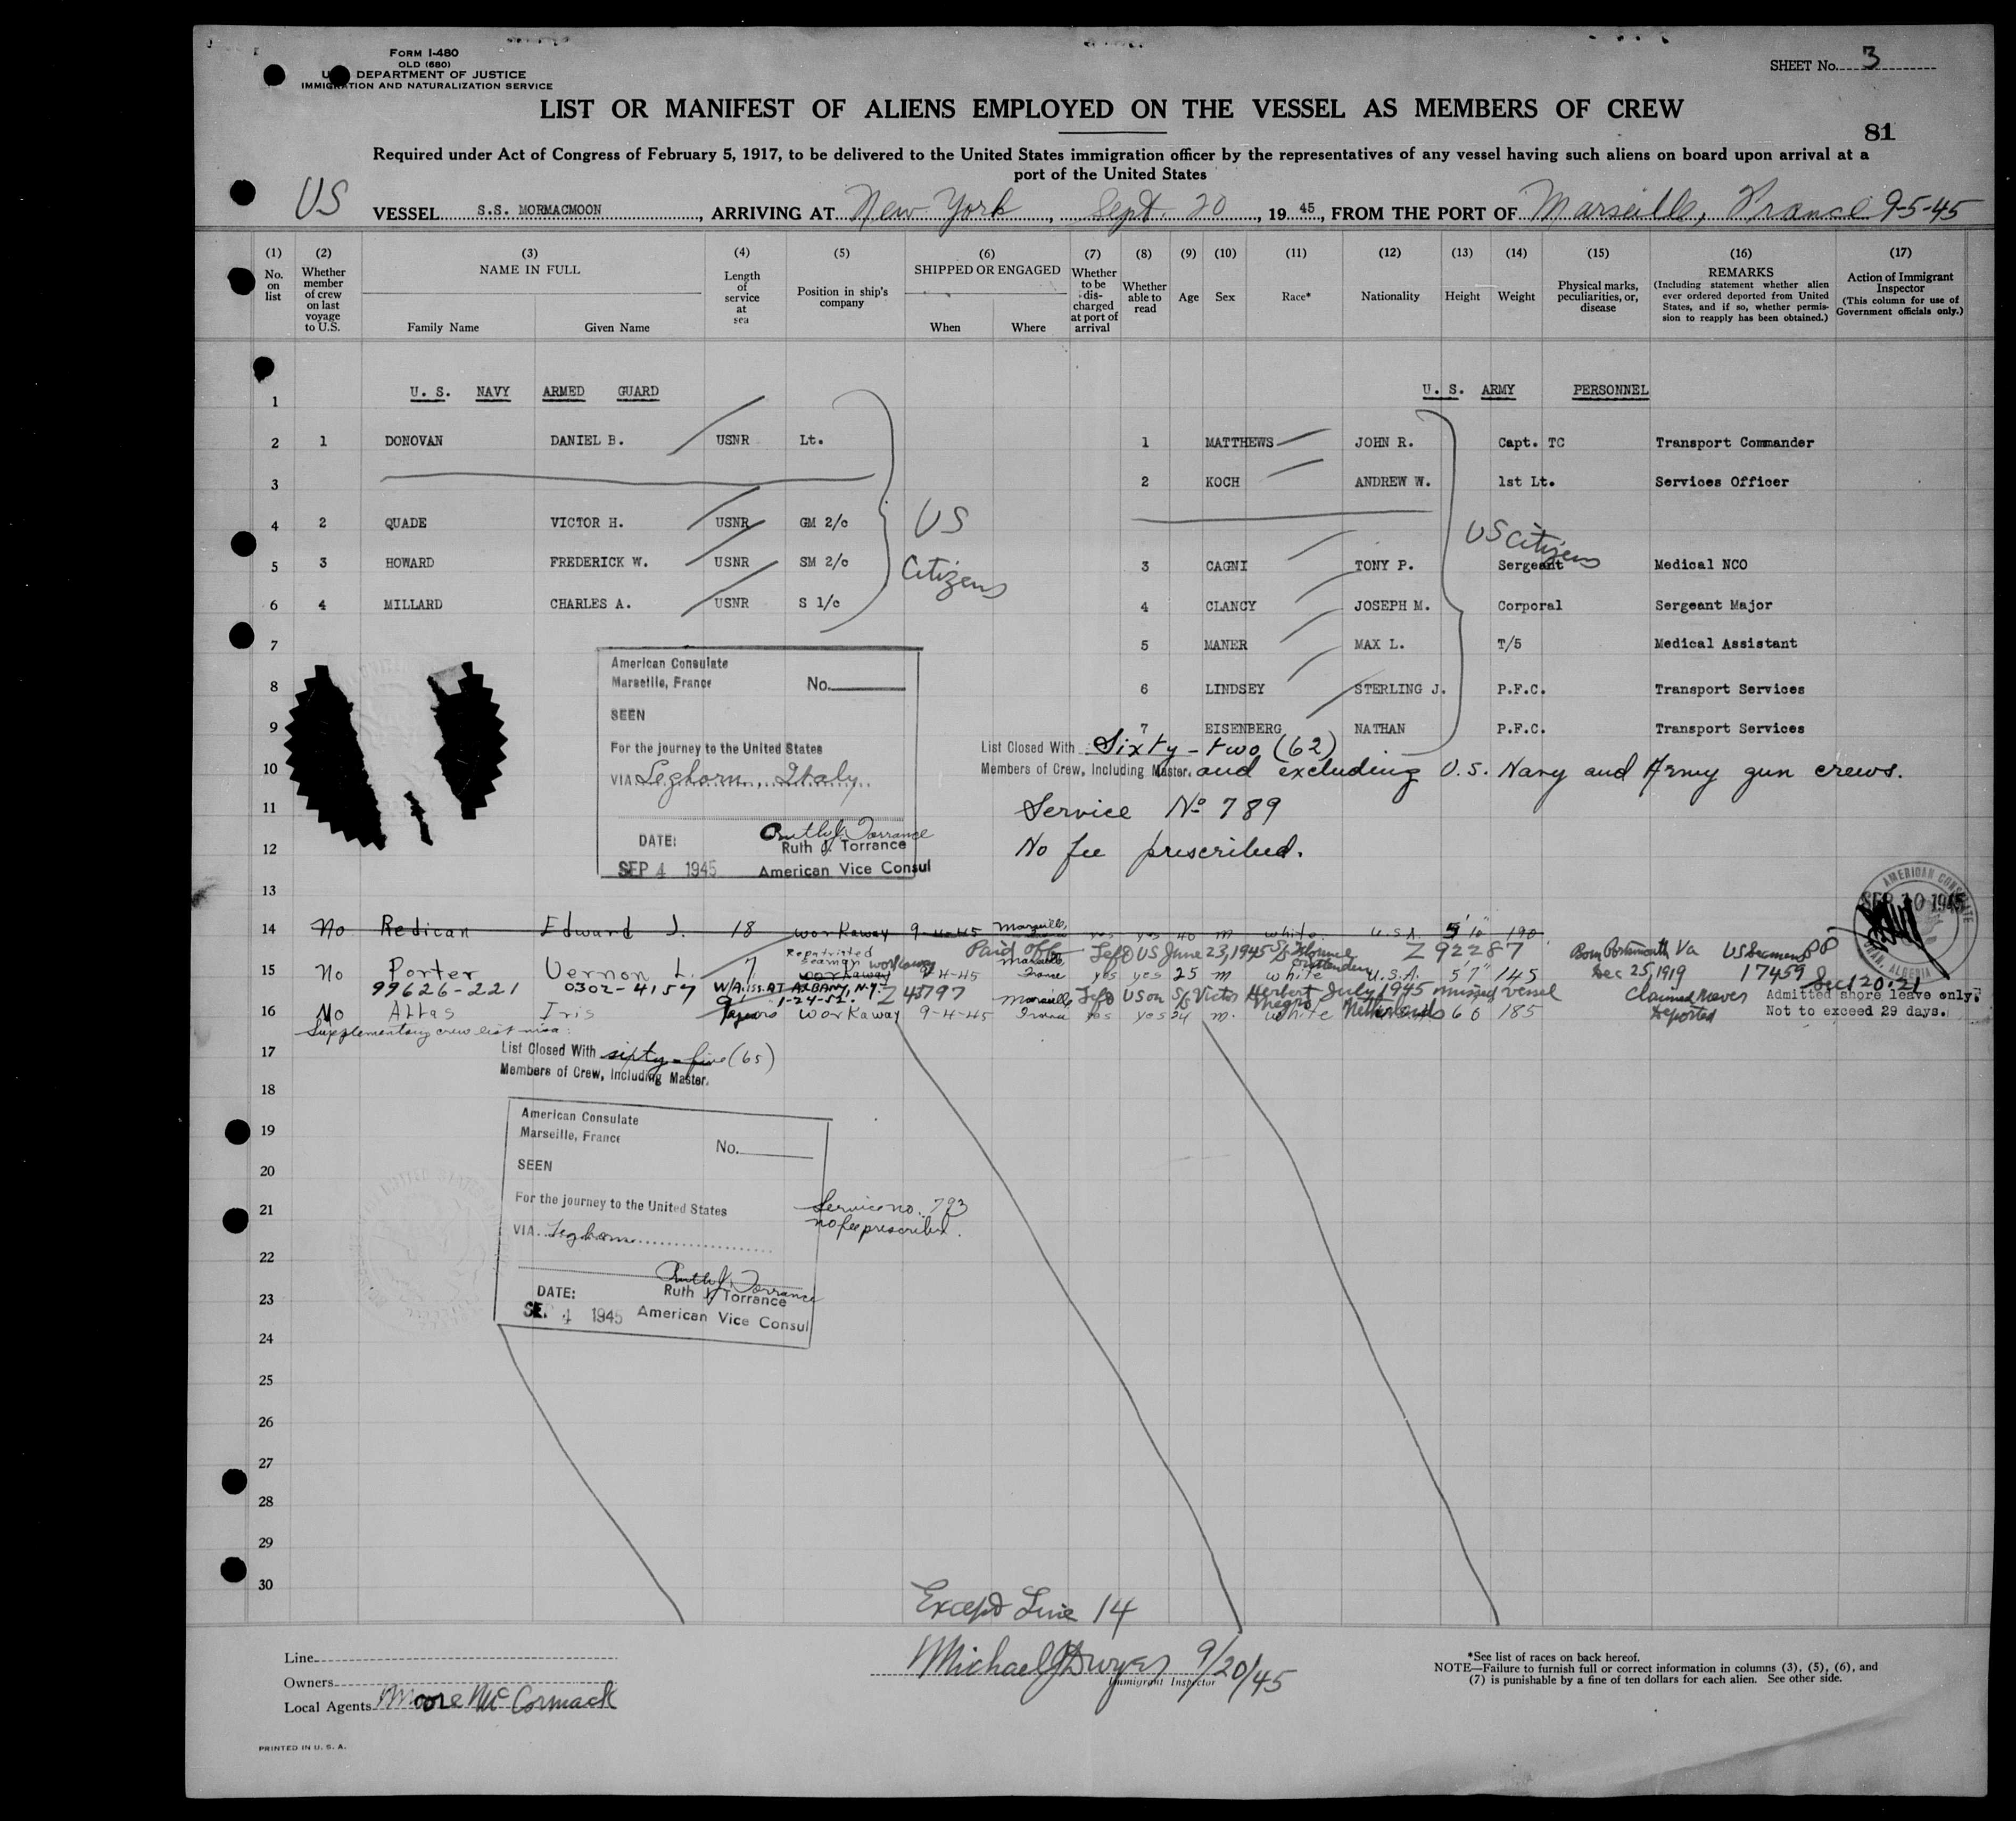 FORM I-480
OLD (680)
DEPARTMENT OF JUSTICE
IMMIGRATION AND NATURALIZATION SERVICE
SHEET No. 3
LIST OR MANIFEST OF ALIENS EMPLOYED ON THE VESSEL AS MEMBERS OF CREW
81
Required under Act of Congress of February 5, 1917, to be delivered to the United States immigration officer by the representatives of any vessel having such aliens on board upon arrival at a
port of the United States
US VESSEL S.S. MORMACMOON, ARRIVING AT New York, Sept. 20, 19 45, FROM THE PORT OF Marseille, France 9-5-45
(1) No. on list
(2) Whether member of crew on last voyage to U.S.
(3) NAME IN FULL Family Name Given Name
(4) Length of service at sea
(5) Position in ship's company
(6) SHIPPED OR ENGAGED When Where
(7) Whether to be discharged at port of arrival
(8) Whether able to read
(9) Age
(10) Sex
(11) Race*
(12) Nationality
(13) Height
(14) Weight
(15) Physical marks, peculiarities, or, disease
(16) REMARKS (Including statement whether alien ever ordered deported from United States, and if so, whether permission to reapply has been obtained.)
(17) Action of Immigrant Inspector (This column for use of Government officials only.)
1 U. S. NAVY ARMED GUARD U. S. ARMY PERSONNEL
2 1 DONOVAN DANIEL B. USNR Lt. 1 MATTHEWS JOHN R. Capt. TC Transport Commander
3 2 KOCH ANDREW W. 1st Lt. Services Officer
4 2 QUADE VICTOR H. USNR GM 2/c US
US Citizens
5 3 HOWARD FREDERICK W. USNR SM 2/c Citizens 3 CAGNI TONY P. Sergeant Medical NCO
6 4 MILLARD CHARLES A. USNR S 1/c 4 CLANCY JOSEPH M. Corporal Sergeant Major
7 5 MANER MAX L. T/5 Medical Assistant
8 6 LINDSEY STERLING J. P.F.C. Transport Services
9 7 EISENBERG NATHAN P.F.C. Transport Services
American Consulate
Marseille, France No.
SEEN
For the journey to the United States
VIA Leghorn, Italy
DATE: Ruth J. Torrance
Ruth J. Torrance
SEP 4 1945 American Vice Consul
List Closed With Sixty-two (62)
10 Members of Crew, Including Master. and excluding U.S. Navy and Army gun crews.
11 Service No 789
12 No fee prescribed.
13
AMERICAN CONSULATE
SEP 10 1945
ORAN, ALGERIA
14 No Redican Edward J. 18 workaway 9-4-45 Marseille yes yes 40 m white U.S.A. 5'10" 190
Repatriated seaman workaway Paid off Left US June 23, 1945 Z 92287 Born Portsmouth Va US Seamens PP
15 No Porter Vernon L. 7 workaway 9-4-45 Marseille France yes yes 25 m white U.S.A. 5'7" 145 Dec 25, 1919 17459
99626-221 0302-4157 W/A iss. AT ALBANY, N.Y. 1-24-52. Z 43797 Marseille Left US on S/S Victor Herbert July 1945 missed vessel Claimed never deported
Admitted shore leave only.
Not to exceed 29 days.
16 No Iris workaway 9-4-45 France yes yes 24 m. white Negro Netherlands 6 0 185
Supplementary crew list visa:
17 List Closed With sixty-five (65)
Members of Crew, Including Master.
18
19
20
21
22
23
24
25
26
27
28
29
30
American Consulate
Marseille, France No.
SEEN
For the journey to the United States
VIA Leghorn
DATE: Ruth J. Torrance
Ruth J. Torrance
SEP 4 1945 American Vice Consul
Service no. 793
no fee prescribed.
Except Line 14
Michael J Dwyer 9/20/45
Immigrant Inspector
Line
Owners
Local Agents Moore McCormack
*See list of races on back hereof.
NOTE—Failure to furnish full or correct information in columns (3), (5), (6), and
(7) is punishable by a fine of ten dollars for each alien. See other side.
PRINTED IN U. S. A.